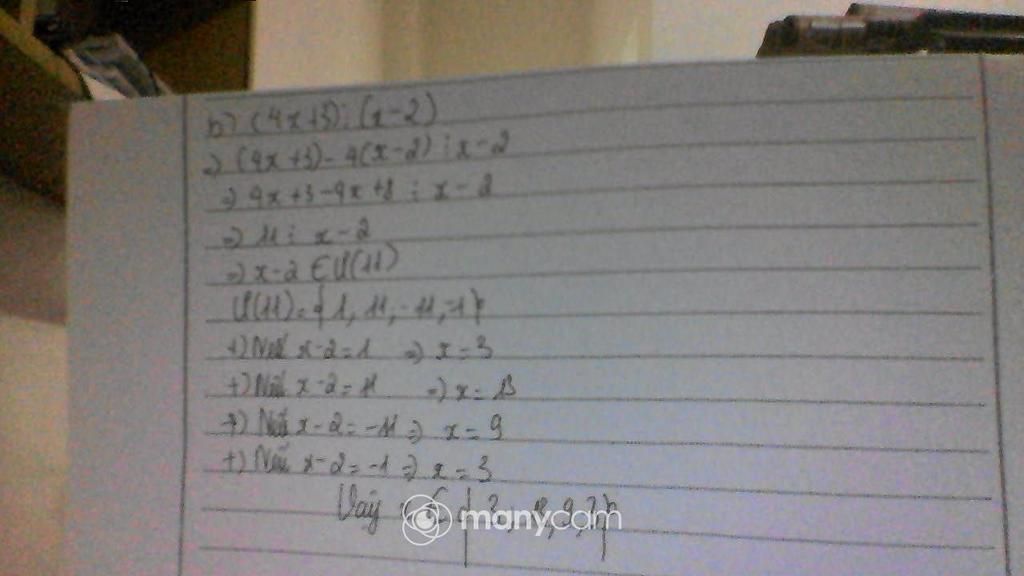 b) (4x+3) ⋮ (x-2)
=) (4x+3) - 4(x-2) ⋮ x-2
=) 4x+3-4x+8 ⋮ x-2
=) 11 ⋮ x-2
=) x-2 ∈ Ư(11)
Ư(11) = {1, 11, -11, -1}
+) Nếu x-2=1 =) x=3
+) Nếu x-2=11 =) x=13
+) Nếu x-2=-11 =) x=9
+) Nếu x-2=-1 =) x=3
Vậy ∈ { 3, 13, 9, 3}
manycam